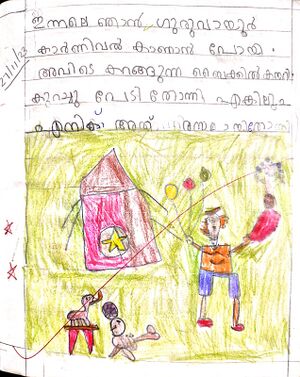 27/11/23
ഇന്നലെ ഞാൻ ഗുരുവായൂർ
കാർണിവൽ കാണാൻ പോയി.
അവിടെ കറങ്ങുന്ന ബൈക്കിൽ കയറി
കുറച്ചു പേടി തോന്നി എങ്കിലും
എനിക്ക് അത്